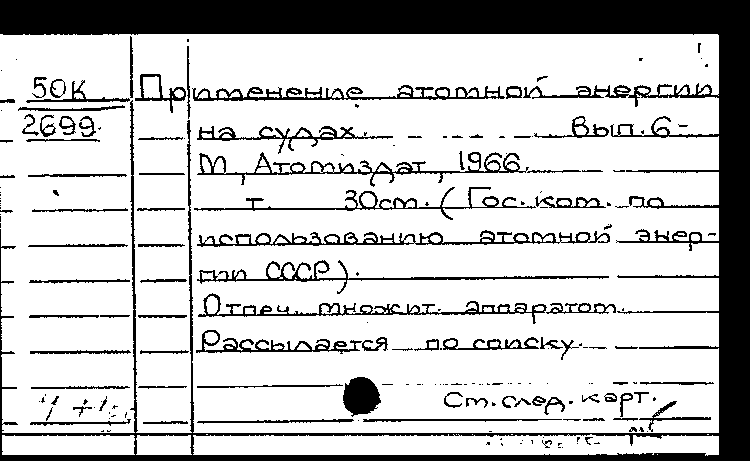 50К Применение атомной энергии
2699 на судах. Вып.6-
М, Атомиздат, 1966.
т. 30см. (Гос. ком. по
использованию атомной энер-
гии СССР).
Отпеч. множит. аппаратом.
Рассылается по списку.
См. след. карт.